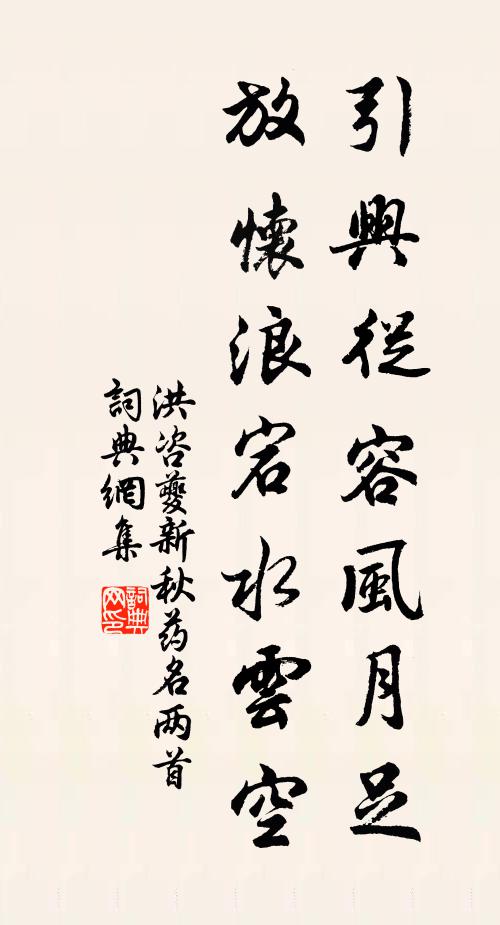 引興從容風月足
放懷浪宕水雲空
洪咨夔新秋药名两首
詞典網集
詞典网印